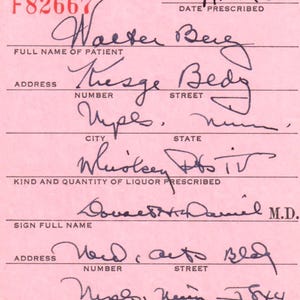 F82667
DATE PRESCRIBED
Walter Berg
FULL NAME OF PATIENT
ADDRESS Kresge Bldg
NUMBER STREET
Mpls. Minn.
CITY STATE
Whiskey
KIND AND QUANTITY OF LIQUOR PRESCRIBED
Donald H. Daniel M.D.
SIGN FULL NAME
ADDRESS Med. Arts Bldg
NUMBER STREET
Mpls. Minn